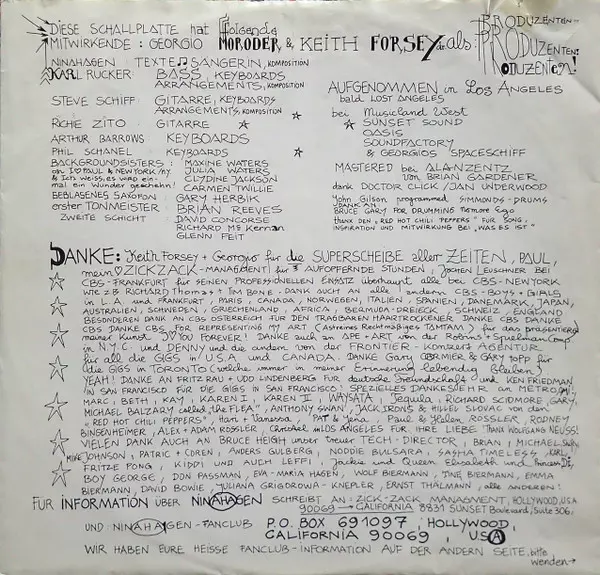 DIESE SCHALLPLATTE hat folgende
MITWIRKENDE: GEORGIO MORODER & KEITH FORSEY als PRODUZENTEN
PRODUZENTEN:
PRODUZENTEN!
NINA HAGEN: TEXTE SÄNGERIN, KOMPOSITION
KARL RUCKER: BASS, KEYBOARDS
ARRANGEMENTS, KOMPOSITION
STEVE SCHIFF: GITARRE, KEYBOARDS
ARRANGEMENTS, KOMPOSITION
RICHIE ZITO: GITARRE
ARTHUR BARROWS: KEYBOARDS
PHIL SCHANEL: KEYBOARDS
BACKGROUNDSISTERS: MAXINE WATERS
on I ♡ PAUL & NEW YORK/NY JULIA WATERS
& Ich weiss, es wird ein- CLYDINE JACKSON
mal ein Wunder geschehn! CARMEN TWILLIE
GEBLASENES SAXOFON: GARY HERBIK
erster TONMEISTER: BRIAN REEVES
ZWEITE SCHICHT: DAVID CONCORSE
RICHARD McKernan
GLENN FEIT
AUFGENOMMEN in Los ANGELES
bald LOST ANGELES
bei Musicland West
SUNSET SOUND
OASIS
SOUNDFACTORY
& GEORGIOS SPACESCHIFF
MASTERED bei ALAN ZENTZ
von BRIAN GARDENER
dank DOCTOR CLICK/JAN UNDERWOOD
John Gilson programmed SIMMONDS-DRUMS
DANK AN
BRUCE GARY FOR DRUMMING no more Ego
thank den "RED HOT CHILI PEPPERS" FÜR SONG,
INSPIRATION UND MITWIRKUNG BEI "WAS ES IST"
DANKE: Keith FORSEY + Georgio für die SUPERSCHEIBE aller ZEITEN, PAUL,
mein ♡ ZICKZACK-MANAGMENT für AUFOPFERNDE STUNDEN, JOCHEN LEUSCHNER BEI
CBS-FRANKFURT für SEINEN PROFESSIONELLEN EINSATZ überhaupt alle bei CBS-NEW YORK
WIE Z.B. RICHARD Thomas + Tim BONE. DANK AUCH AN alle andern CBS BOYS + GIRLS
in L.A. und FRANKFURT, PARIS, CANADA, NORWEGEN, ITALIEN, SPANIEN, DÄNEMARK, JAPAN,
AUSTRALIEN, SCHWEDEN, GRIECHENLAND, AFRICA, BERMUDA-DREIECK, SCHWEIZ, ENGLAND
BESONDEREN DANK AN CBS ÖSTERREICH FÜR DEN TRAGBAREN HAARTROCKENER. DANKE CBS DANKE
CBS DANKE CBS FOR REPRESENTING MY ART (Astreines Rechtmäßiges TAMTAM) für das präsentieren
meiner Kunst I ♡ YOU FOREVER! DANKE auch an APE + ART von der Robins + Spielman Comp.
in N.Y.C. und DENNY und die andern von der FRONTIER-KONZERT AGENTUR
für all die GIGS in U.S.A und CANADA. DANKE Gary CORMIER & GARY TOPP für
die GIGS in TORONTO (welche immer in meiner Erinnerung lebendig bleiben)
YEAH! DANKE AN FRITZ RAU + UDO LINDENBERG für deutsche Freundschaft und KEN FRIEDMAN
in SAN FRANCISCO FÜR DIE GIGS IN SAN FRANCISCO! SPIELLES DANKESEHR an METRO,
MARC, BETH, KAY, KAREN I, KAREN II, WAYSATA, Tequila, RICHARD SCIDMORE, GARY,
MICHAEL BALZARY called "the FLEA", ANTHONY SWAN, JACK IRONS & HILLEL SLOVAC von den
"RED HOT CHILI PEPPERS", Hari, Vanessa, Pat & Yena, Paul & Helen ROSSLER, RODNEY
BINGENHEIMER, Alex + ADAM ROSSLER, Christoph in LOS ANGELES FÜR IHRE LIEBE THANX WOLFGANG NEUSS!
VIELEN DANK AUCH AN BRUCE HEIGH unser treuer TECH-DIRECTOR, BRIAN, MICHAEL
MIKE JOHNSON, PATRIC + COREN, ANDERS GULBERG, NODDIE BULSARA, SASHA TIMELESS, KARL,
FRITZE PONG, KIDDI UND AUCH LEFFI, Jackie und Queen Elisabeth und Princess DI,
BOY GEORGE, DON PASSMAN, EVA-MARIA HAGEN, WOLF BIERMANN, TINE BIERMANN, EMMA
BIERMANN, DAVID BOWIE, JULIANA GRIGOROWA-KNEPLER, ERNST THÄLMANN, alle anderen!
FÜR INFORMATION ÜBER NINAHAGEN SCHREIBT AN: ZICK-ZACK MANAGMENT, HOLLYWOOD, USA
90069 → CALIFORNIA 8831 SUNSET Boulevard, SUITE 306,
UND NINAHAGEN-FANCLUB P.O. BOX 691097, HOLLYWOOD,
CALIFORNIA 90069, USA
WIR HABEN EURE HEISSE FANCLUB-INFORMATION AUF DER ANDERN SEITE, bitte
wenden→